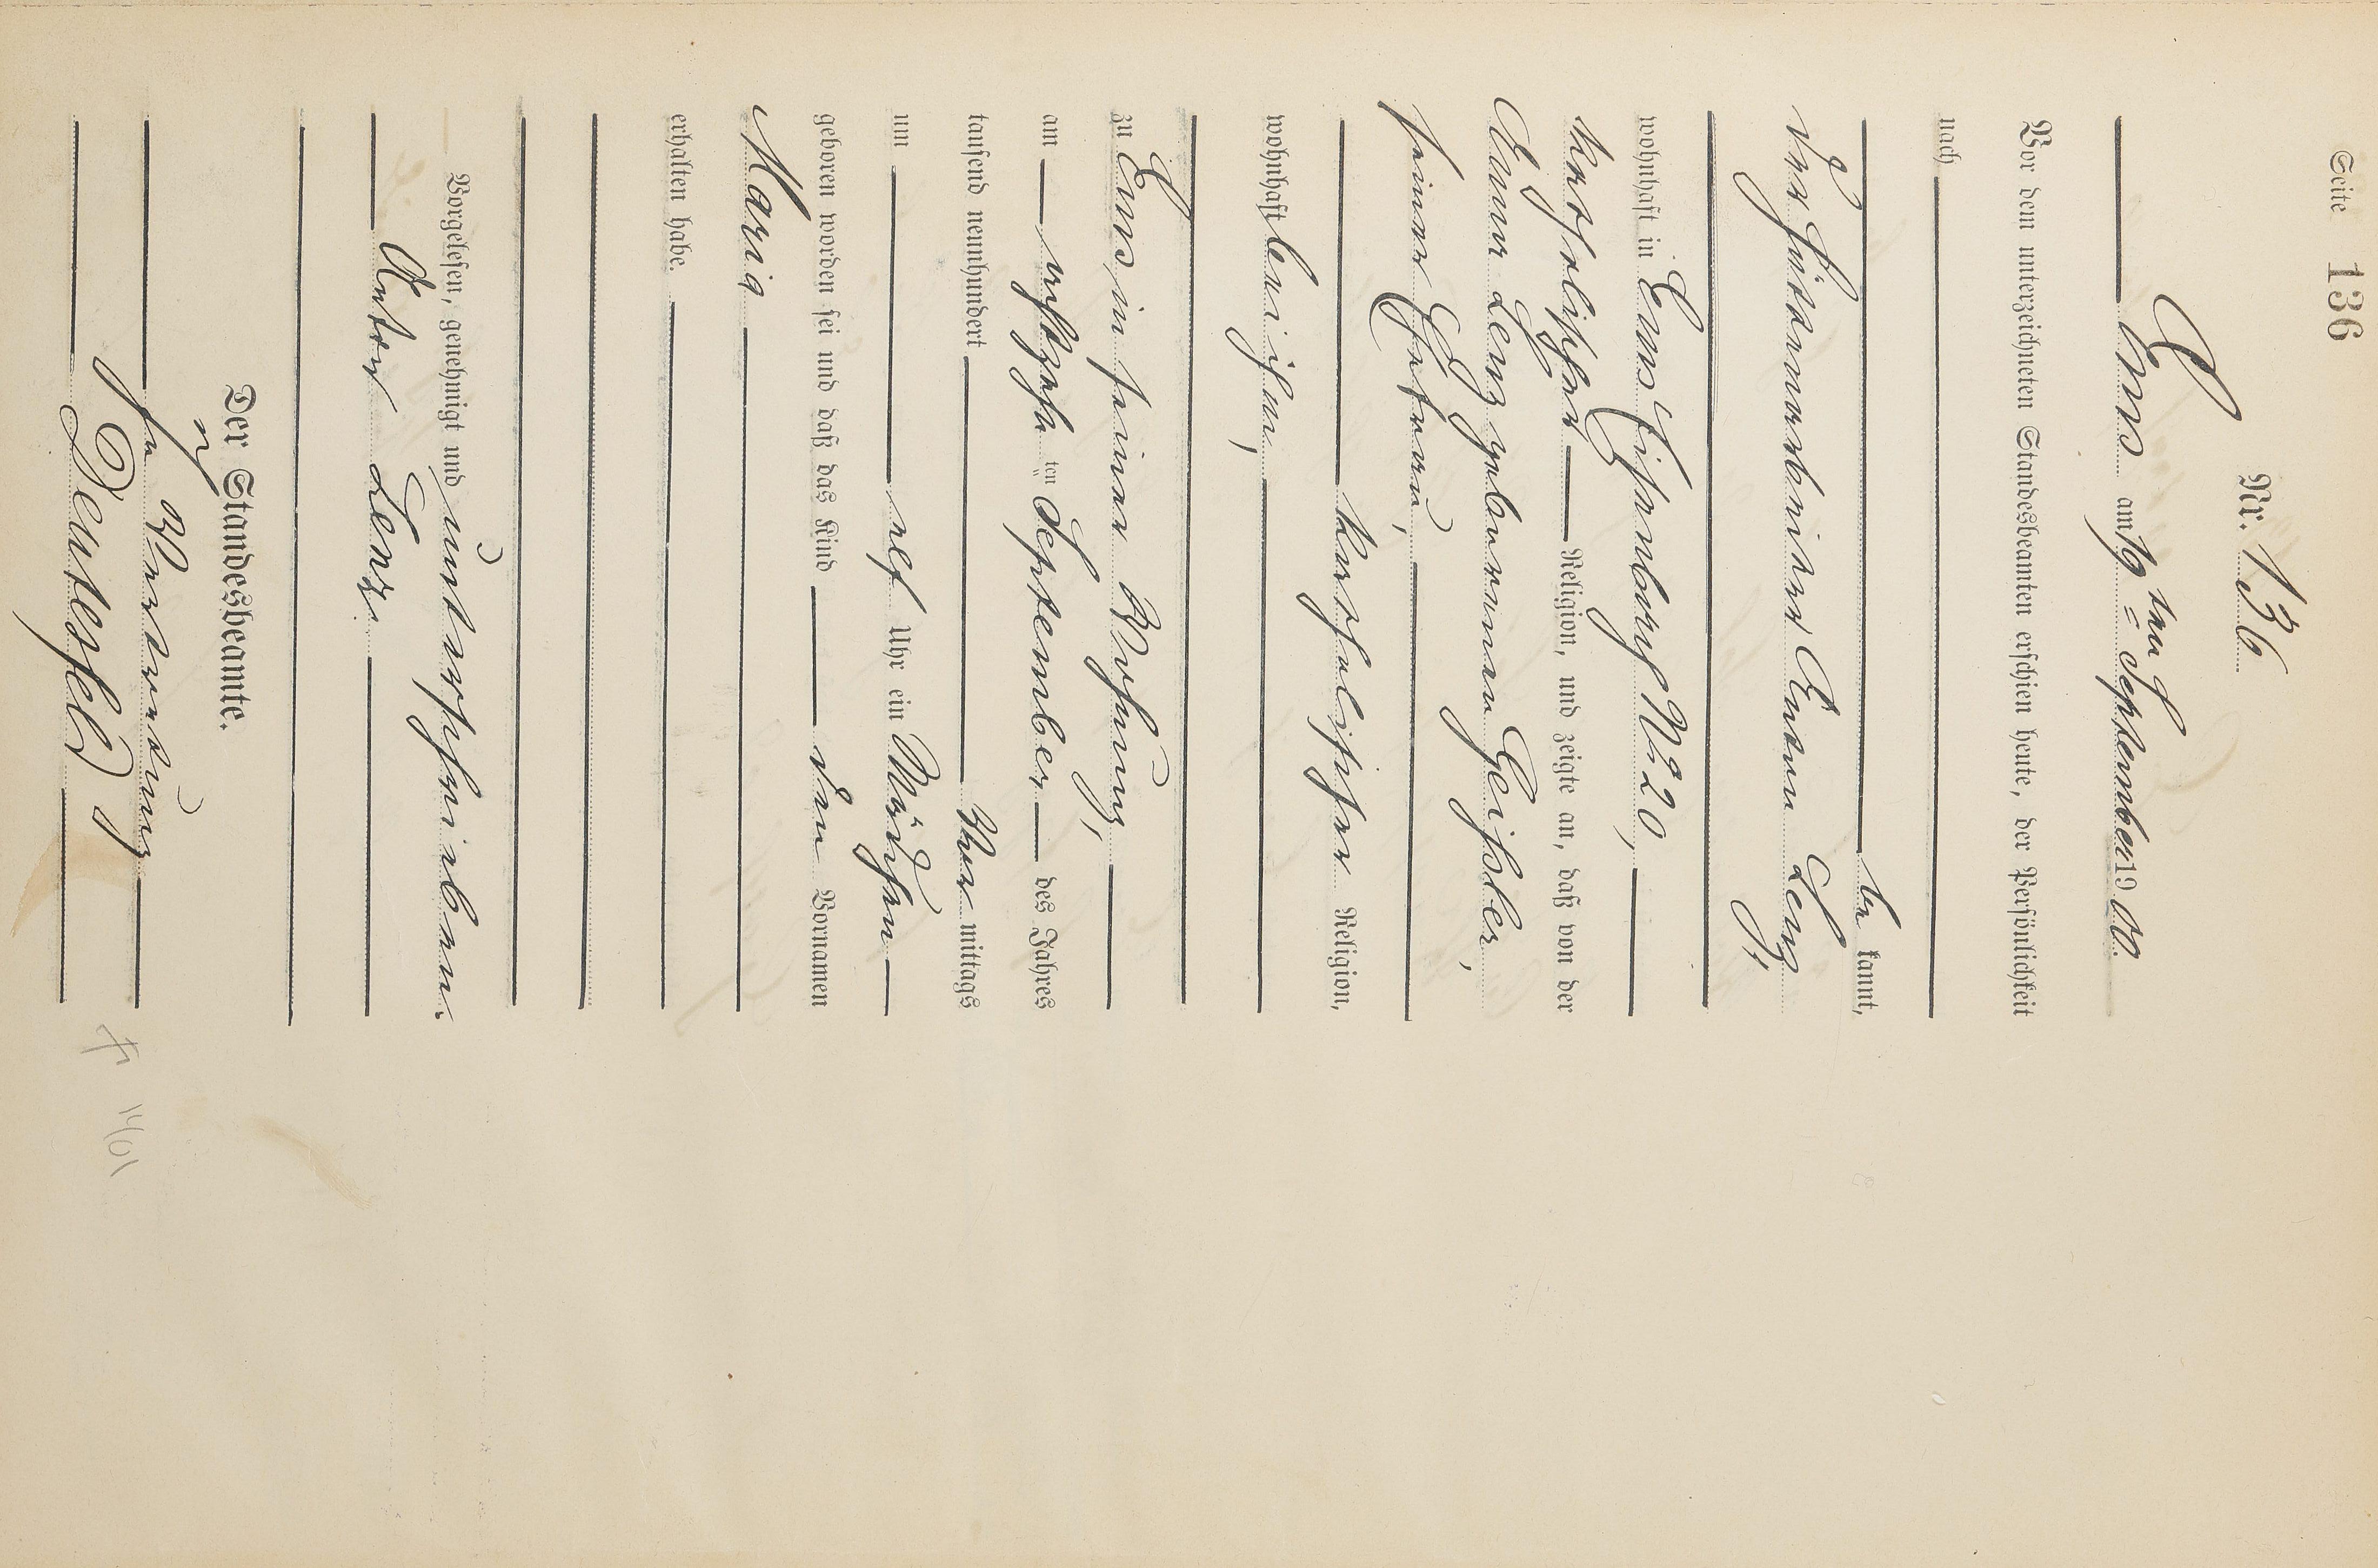 Seite 136
Nr. 136
Ems am 19ten September 1900.
Vor dem unterzeichneten Standesbeamten erschien heute, der Persönlichkeit
nach
be kannt,
der Hüttenarbeiter Anton Lenz,
wohnhaft in Ems, N: 20,
katholischer Religion, und zeigte an, daß von der
Anna Lenz geborenen Geißler,
seiner Ehefrau,
katholischer Religion,
wohnhaft bei ihm,
zu Ems in seiner Wohnung,
am achtzehnten September des Jahres
tausend neunhundert Vor mittags
um elf Uhr ein Mädchen
geboren worden sei und daß das Kind den Vornamen
Maria
erhalten habe.
Vorgelesen, genehmigt und unterschrieben.
Anton Lenz.
Der Standesbeamte.
In Vertretung